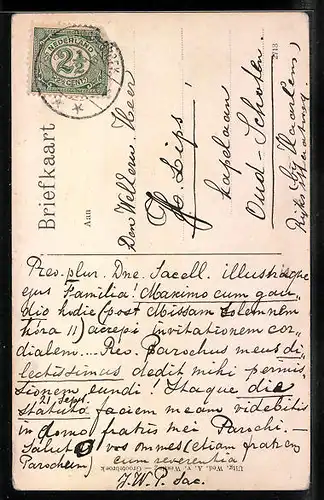 NEDERLAND
2½
CENT
Briefkaart
Aan
Den Weleerw. Heer
Lips!
Kapelaan
Oud-Schoten
bij Haarlem,
Rijksstraatweg.
2713
Rev. plur. Dne. Sacell. illustrisque
ejus Familia! Maximo cum gau-
dio hodie (post Missam solemnem
hora 11) accepi invitationem cor-
dialem... Rev. Parochus meus di-
lectissimus dedit mihi permis-
sionem eundi! Itaque die
21 Sept.
statuto faciem meam videbitis
in domo fratris mei Parochi.-
Saluto vos omnes (etiam fratrem
Parochum) cum reverentia
J.W.P. Sac.
Uitg. Wed. A. v. — Grootebroek